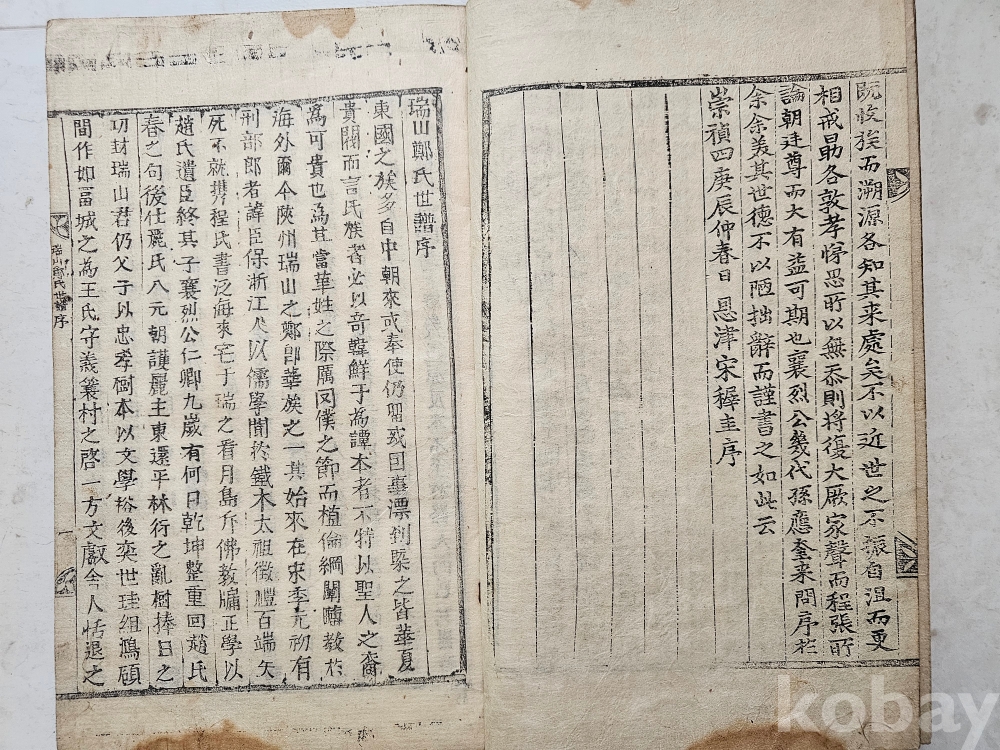 既收族而溯源各知其来處矣不以近世之不振自沮而更
相戒勗各敦孝悌思所以無忝則将復大厥家聲而程張所
論朝廷尊而大有益可期也襄烈公幾代孫應奎来問序於
余余羙其世德不以陋拙辭而謹書之如此云
崇禎四庚辰仲春日 恩津宋穉圭序
瑞山鄭氏世譜序
東國之族多自中朝來或奉使仍留或因事漂到槩之皆華夏
貴閥而言氏族者必以奇韓鮮于為譚本者不特以聖人之裔
為可貴也為其當華姓之際厲罔僕之節而植倫綱闡嘵教於
海外爾今陜州瑞山之鄭即華族之一其始來在宋季元初有
刑部郎者諱臣保浙江人以儒學聞於鐵木太祖徵禮百端矢
死不就携程氏書泛海來宅于瑞之看月島斥佛教牖正學以
趙氏遺臣終其子襄烈公仁卿九歲有何日乾坤整重回趙氏
春之句後仕麗氏八元朝護麗主東還平林衍之亂樹捧日之
功封瑞山君仍父子以忠孝樹本以文學裕後奕世珪組鴈碩
間作如富城之為王氏守義簑村之啓一方文獻舍人恬退之
瑞山鄭氏世譜序 一
kobay